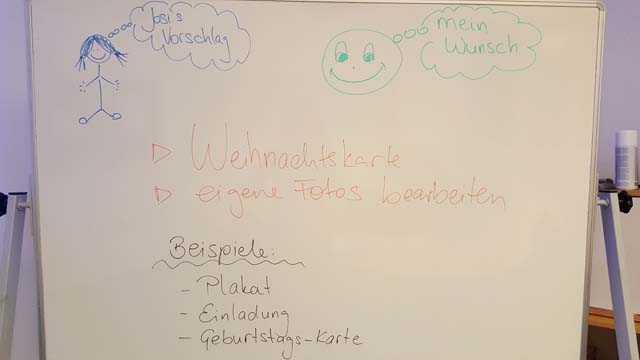 Josi's
Vorschlag
mein
Wunsch
▷ Weihnachtskarte
▷ eigene Fotos bearbeiten
Beispiele:
- Plakat
- Einladung
- Geburtstags-Karte